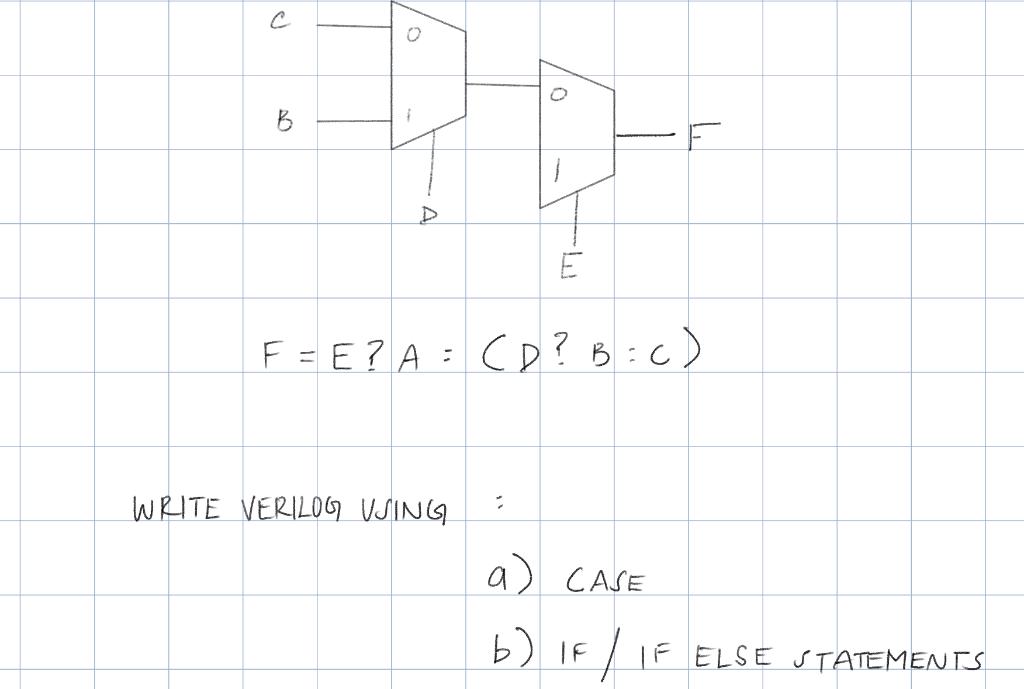 C
0
B
1
0
F
1
D
E
F = E ? A : ( D ? B : C )
WRITE VERILOG USING :
a) CASE
b) IF / IF ELSE STATEMENTS